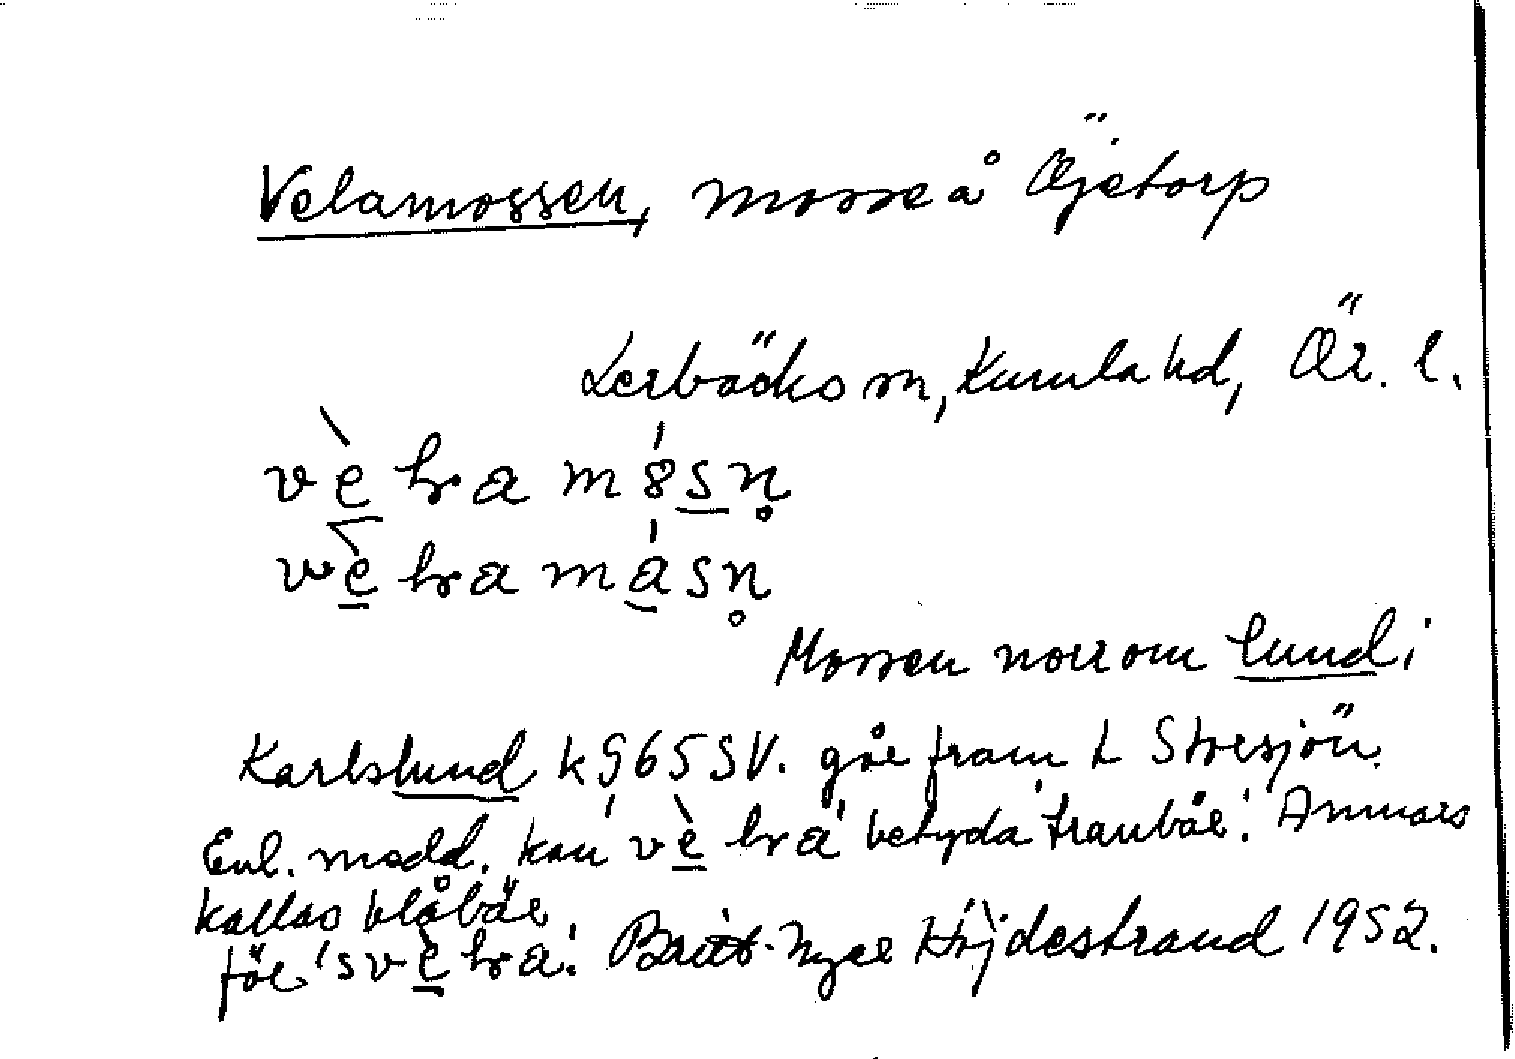 Velamossen, mosse å Öjetorp
Lerbäcks sn, Kumla hd, Ör. l.
Mossen norrom Lund i
Karlslund k 965 SV. går fram t Stresjön.
Enl. medd. kan betyda 'tranbär'. Annars
kallas blåbär
för Britt-Nyce Höjdestrand 1952.